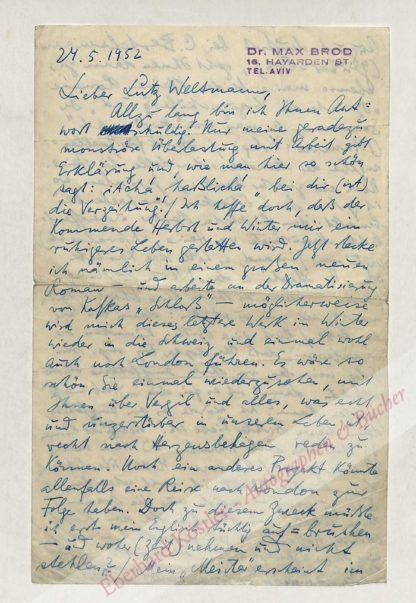 24.5.1952
Dr. MAX BROD
16, HAYARDEN ST.
TEL.AVIV
Lieber Lutz Weltmann,
Allzu lang bin ich Ihnen Ant=
wort schuldig. Nur meine geradezu
monströse Überlastung mit Arbeit gibt
Erklärung und, wie man hier so schön
sagt: „itcha haßlicha" „bei dir (ist)
die Verzeihung". Ich hoffe doch, daß der
kommende Herbst und Winter mir ein
ruhigeres Leben gestatten wird. Jetzt stecke
ich nämlich in einem großen neuen
Roman und arbeite an der Dramatisierung
von Kafkas „Schloß" – möglicherweise
wird mich dieses letztere Werk im Winter
wieder in die Schweiz und einmal wohl
auch nach London führen. Es wäre so
schön, Sie einmal wiederzusehen, mit
Ihnen über Vergil und alles, was echt
und unzerstörbar in unseren Leben ist,
recht nach Herzensbehagen reden zu
können. Noch ein anderes Projekt könnte
allenfalls eine Reise nach London zur
Folge haben. Doch zu diesem Zweck müßte
ich erst mein Englisch tüchtig auf=
– und woher (Zeit) nehmen und nicht
stehlen? Mein „Meister" erscheint im
Eberhard Köstler Autographen & Bücher